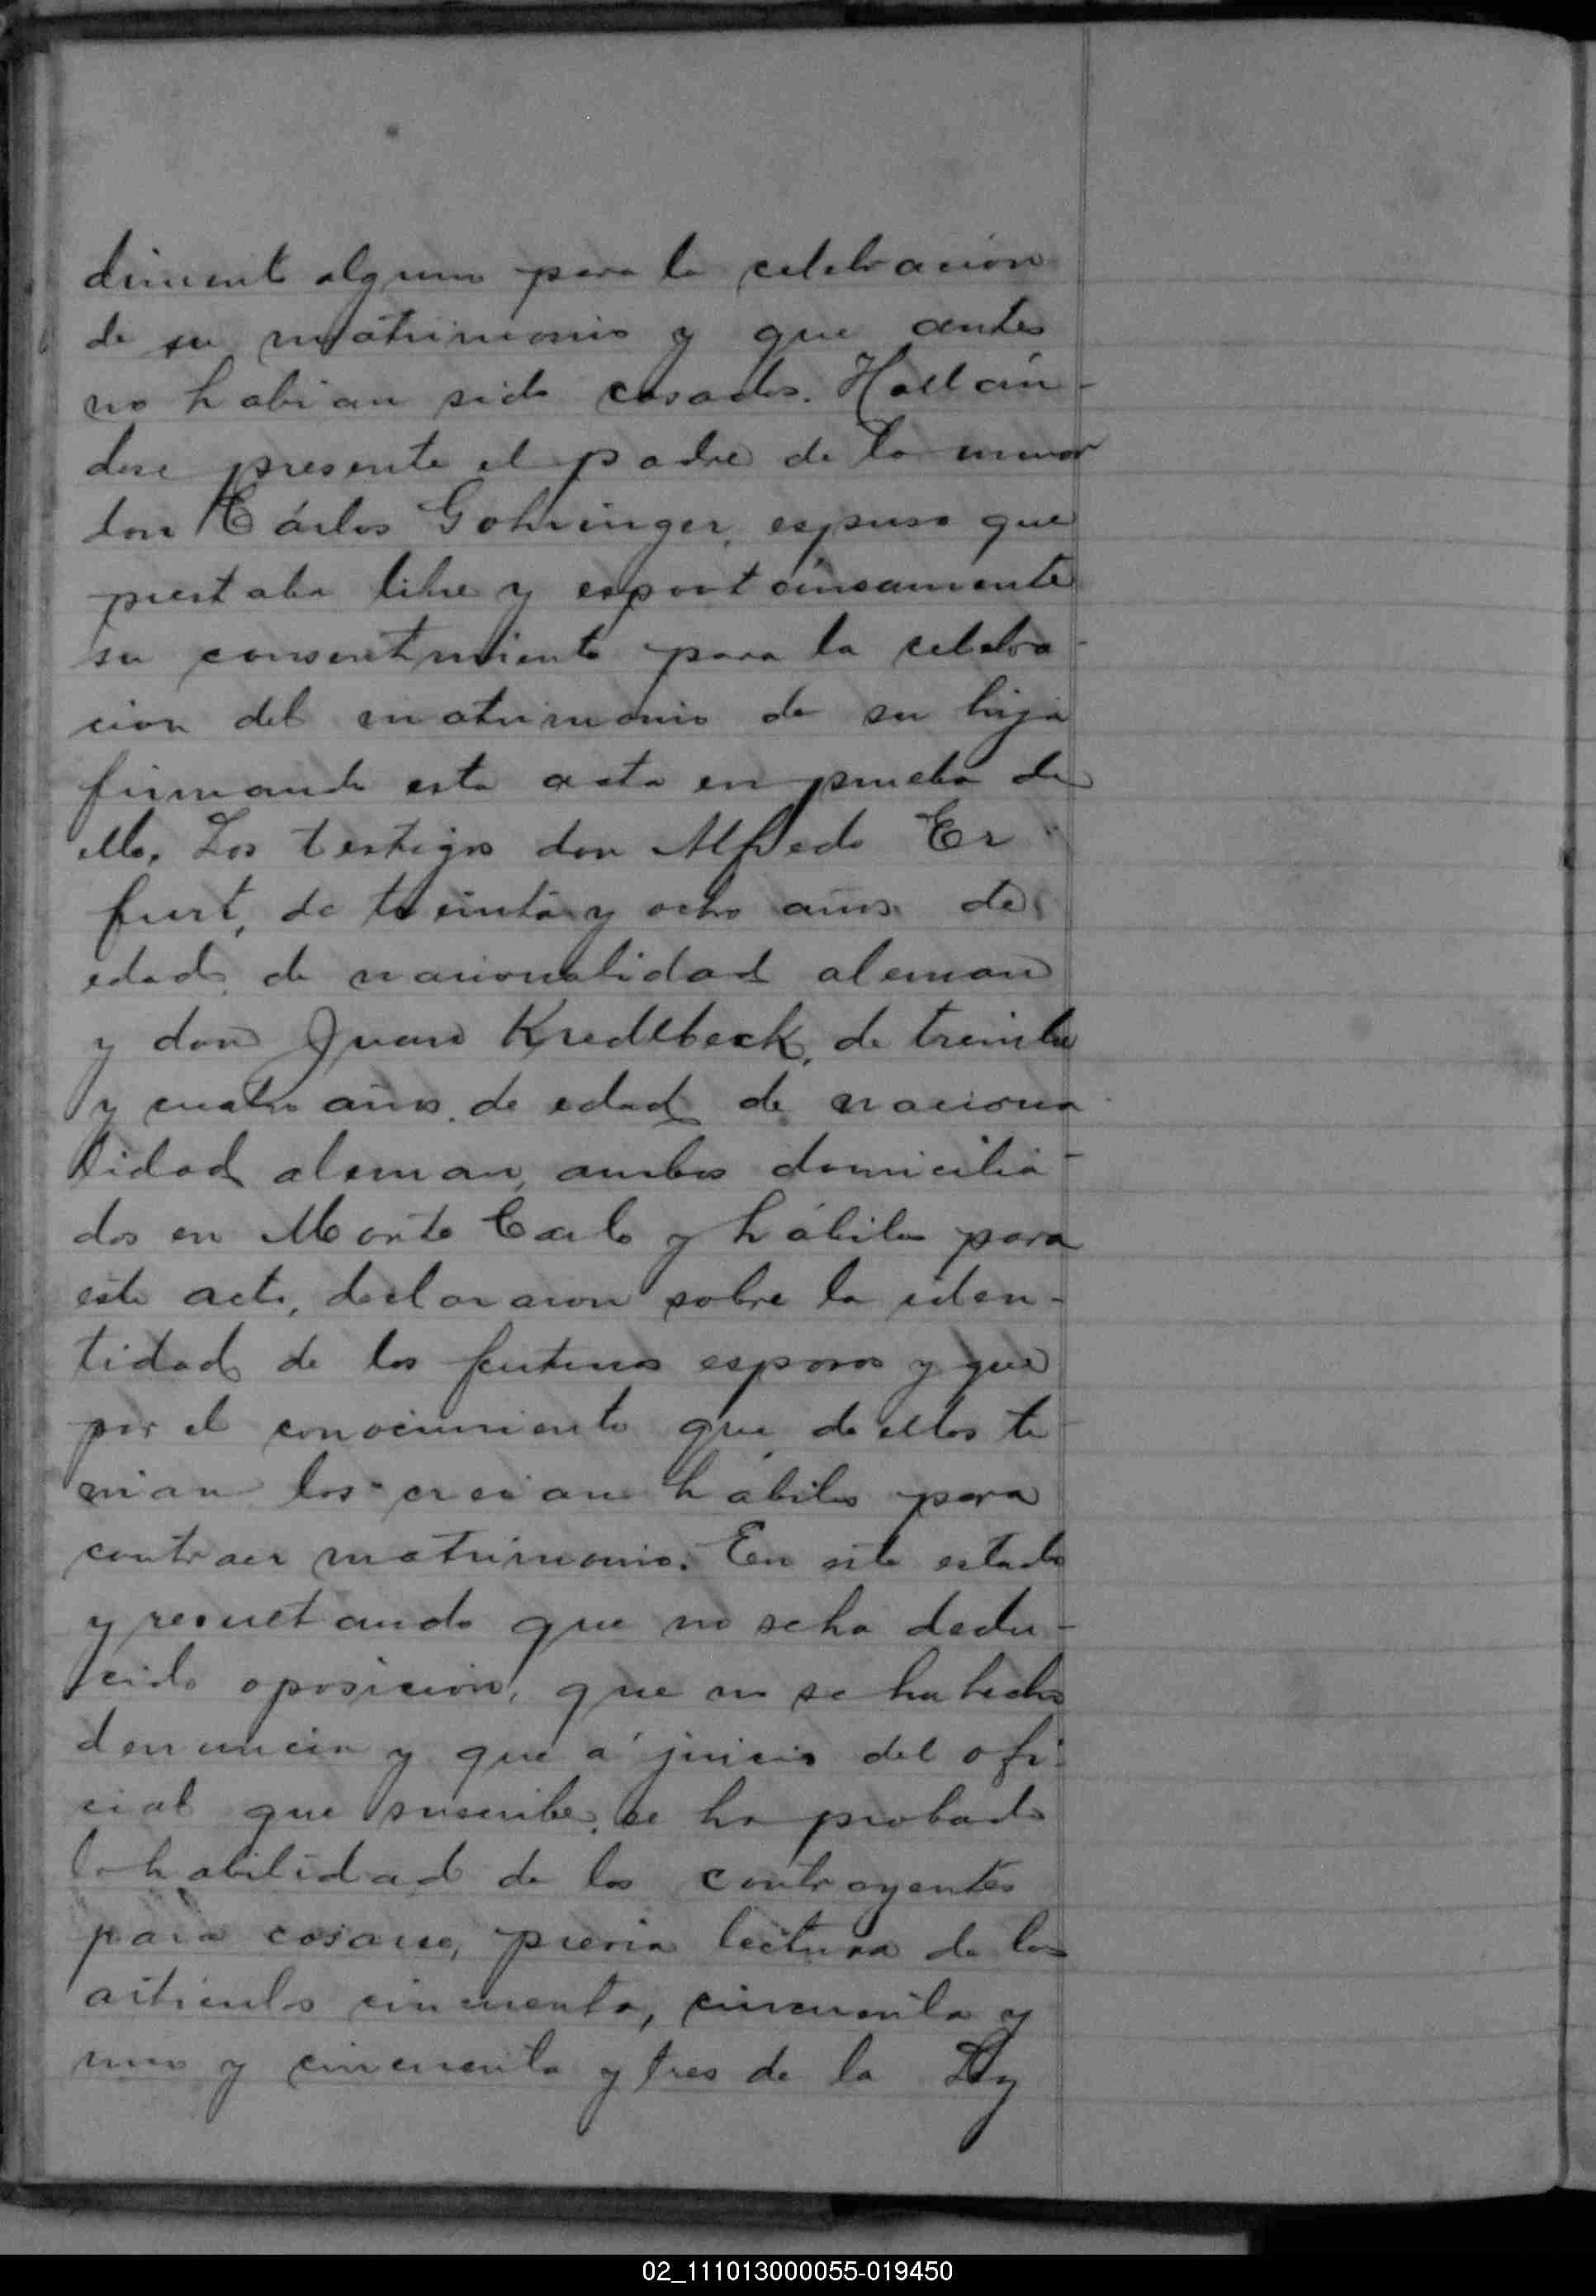 dimento alguno para la celebracion
de su matrimonio y que antes
no habian sido casados. Hallán-
dose presente el padre de la menor
don Cárlos Gohringer, espuso que
prestaba libre y espontáneamente
su consentimiento para la celebra-
cion del matrimonio de su hija
firmando esta acta en prueba de
ello. Los testigos don Alfredo Er
furt, de treinta y ocho años de
edad de nacionalidad aleman
y don Juan Kredlbeck, de treinta
y cuatro años de edad de naciona
lidad aleman, ambos domicilia-
dos en Monte Carlo y hábiles para
este acto, declararon sobre la iden-
tidad de los futuros esposos y que
por el conocimiento que de ellos te-
nian los creian hábiles para
contraer matrimonio. En este estado
y resultando que no se ha dedu-
cido oposicion, que no se ha hecho
denuncia y que á juicio del ofi-
cial que suscribe, se ha probado
la habilidad de los contrayentes
para casarse, previa lectura de los
artículos cincuenta, cincuenta y
uno y cincuenta y tres de la Ley
02_111013000055-019450